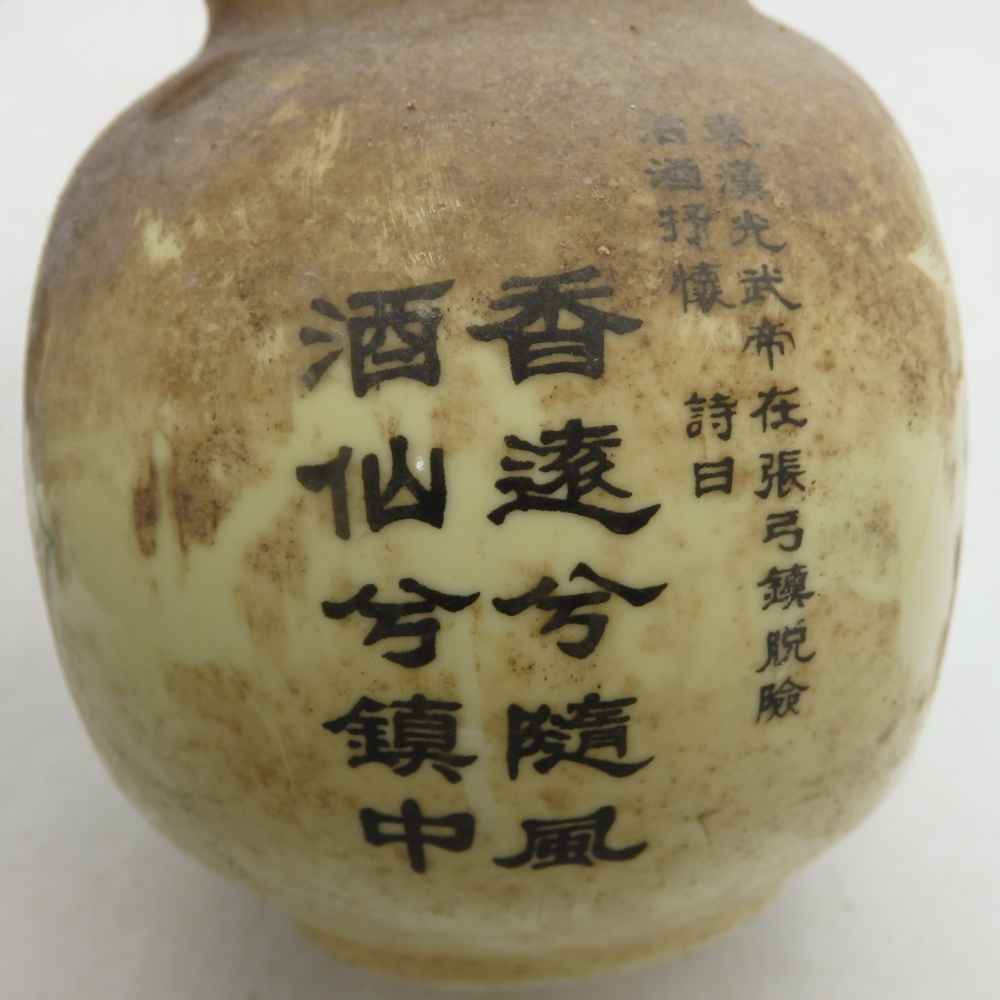 東漢光武帝在張弓鎮脫險
沽酒抒懷 詩曰
香遠兮隨風
酒仙兮鎮中